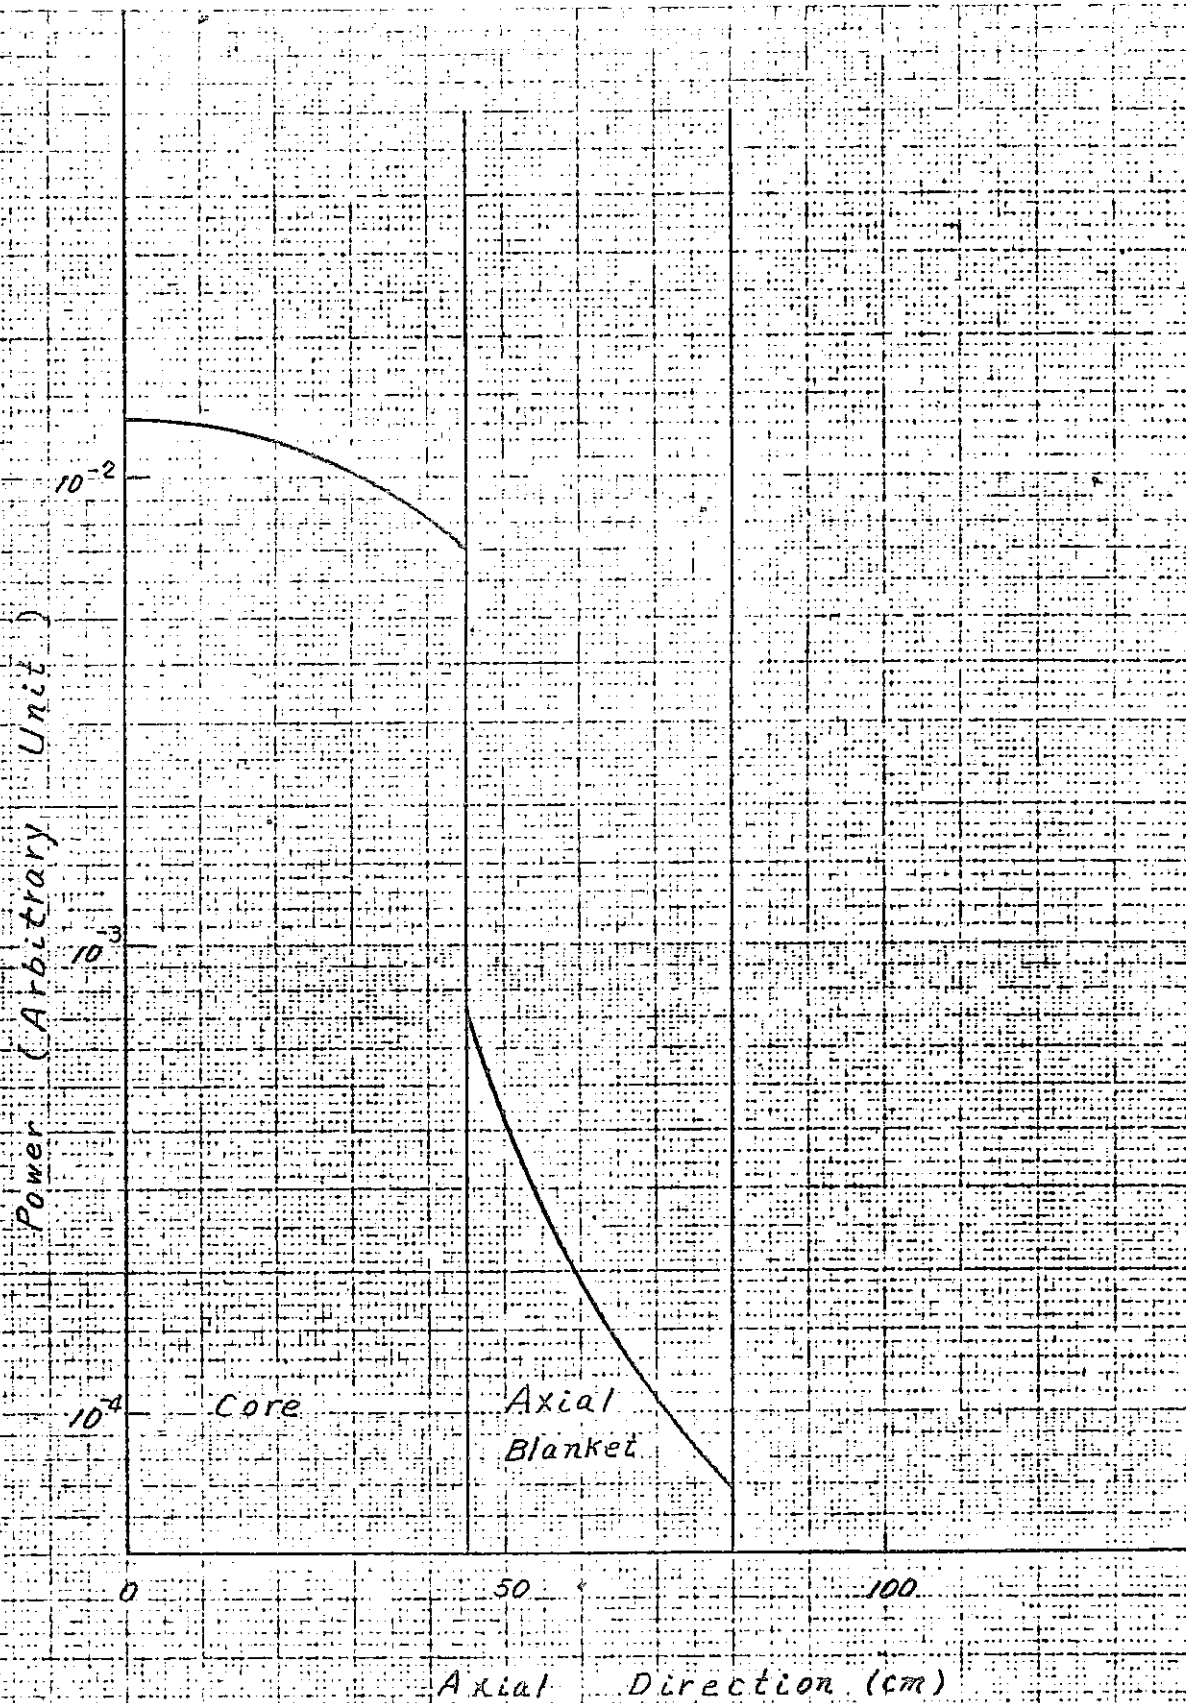 10⁻²
Power (Arbitrary Unit)
10⁻³
10⁻⁴
Core
Axial
Blanket
0
50
100
Axial Direction (cm)